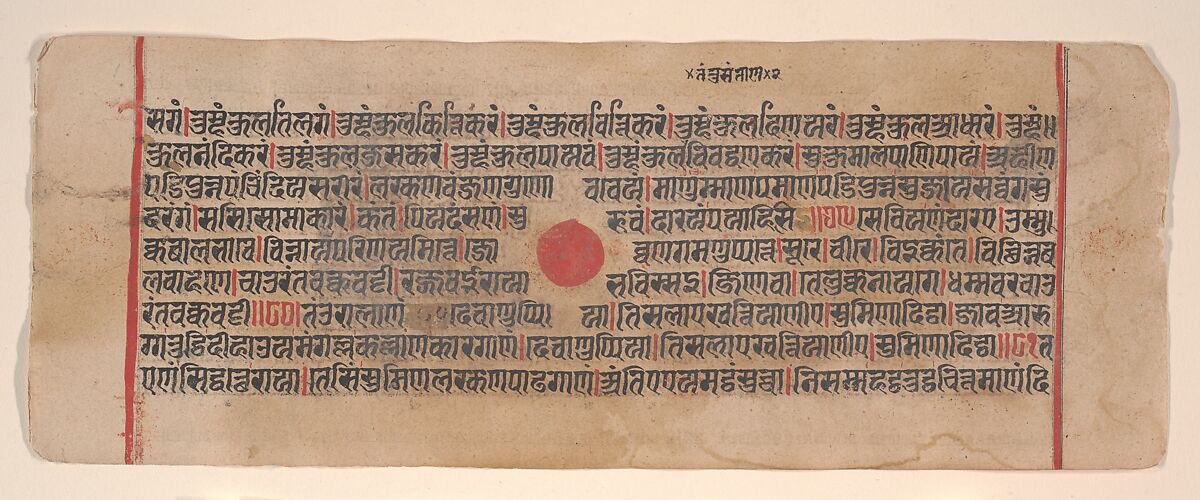 तं तु सं ताण २
सगं।तुम्हं कुलतिलगं।तुम्हं कुलकित्तिकरं।तुम्हं कुलवित्तिकरं।तुम्हं कुलदिणयरं।तुम्हं कुलआधारं।तुम्हं॥
कुलनंदिकरं।तुम्हं कुलजसकरं।तुम्हं कुलपायवं।तुम्हं कुलविवद्धणकरं।सुकुमालपाणिपायं।अहीण
पडिपुन्नपंचिंदियसरीरं।लरकणवंजणगुणो ववेयं।माणुम्माणपमाणपडिपुन्नसुजायसव्वंगसुं
दरंगं।ससिसोमाकारं।कंतं।पियदंसणं।सु रूवं।दारयं पयाहिसि॥७९।सेवि य णं दारए।उम्मु
क्कबालभावे।विन्नायपरिणयमित्ते।जो व्वणगमणुप्पत्ते।सूरे।वीरे।विइक्कंते।विच्छिन्नब
लवाहणे।चाउरंतचक्कवट्टी।रज्जवई राया भविस्सइ।जिणे वा।तेलुक्कनायगे।धम्मवरचाउ
रंतचक्कवट्टी॥८०।तं उराला णं देवाणुप्पि या।तिसलाए खत्तियाणीए।सुमिणा दिट्ठा।जाव आरु
गातुट्ठिदीहाउयमंगल्लकल्लाणकारगा णं।देवाणुप्पिया।तिसलाए खत्तियाणीए।सुमिणा दिट्ठा॥८१त
ए णं सिद्धत्थे राया।तेसिं सुमिणलरकणपाढगाणं।अंतिए एयमट्ठं सुच्चा।निसम्म हट्ठतुट्ठचित्तमाणंदि